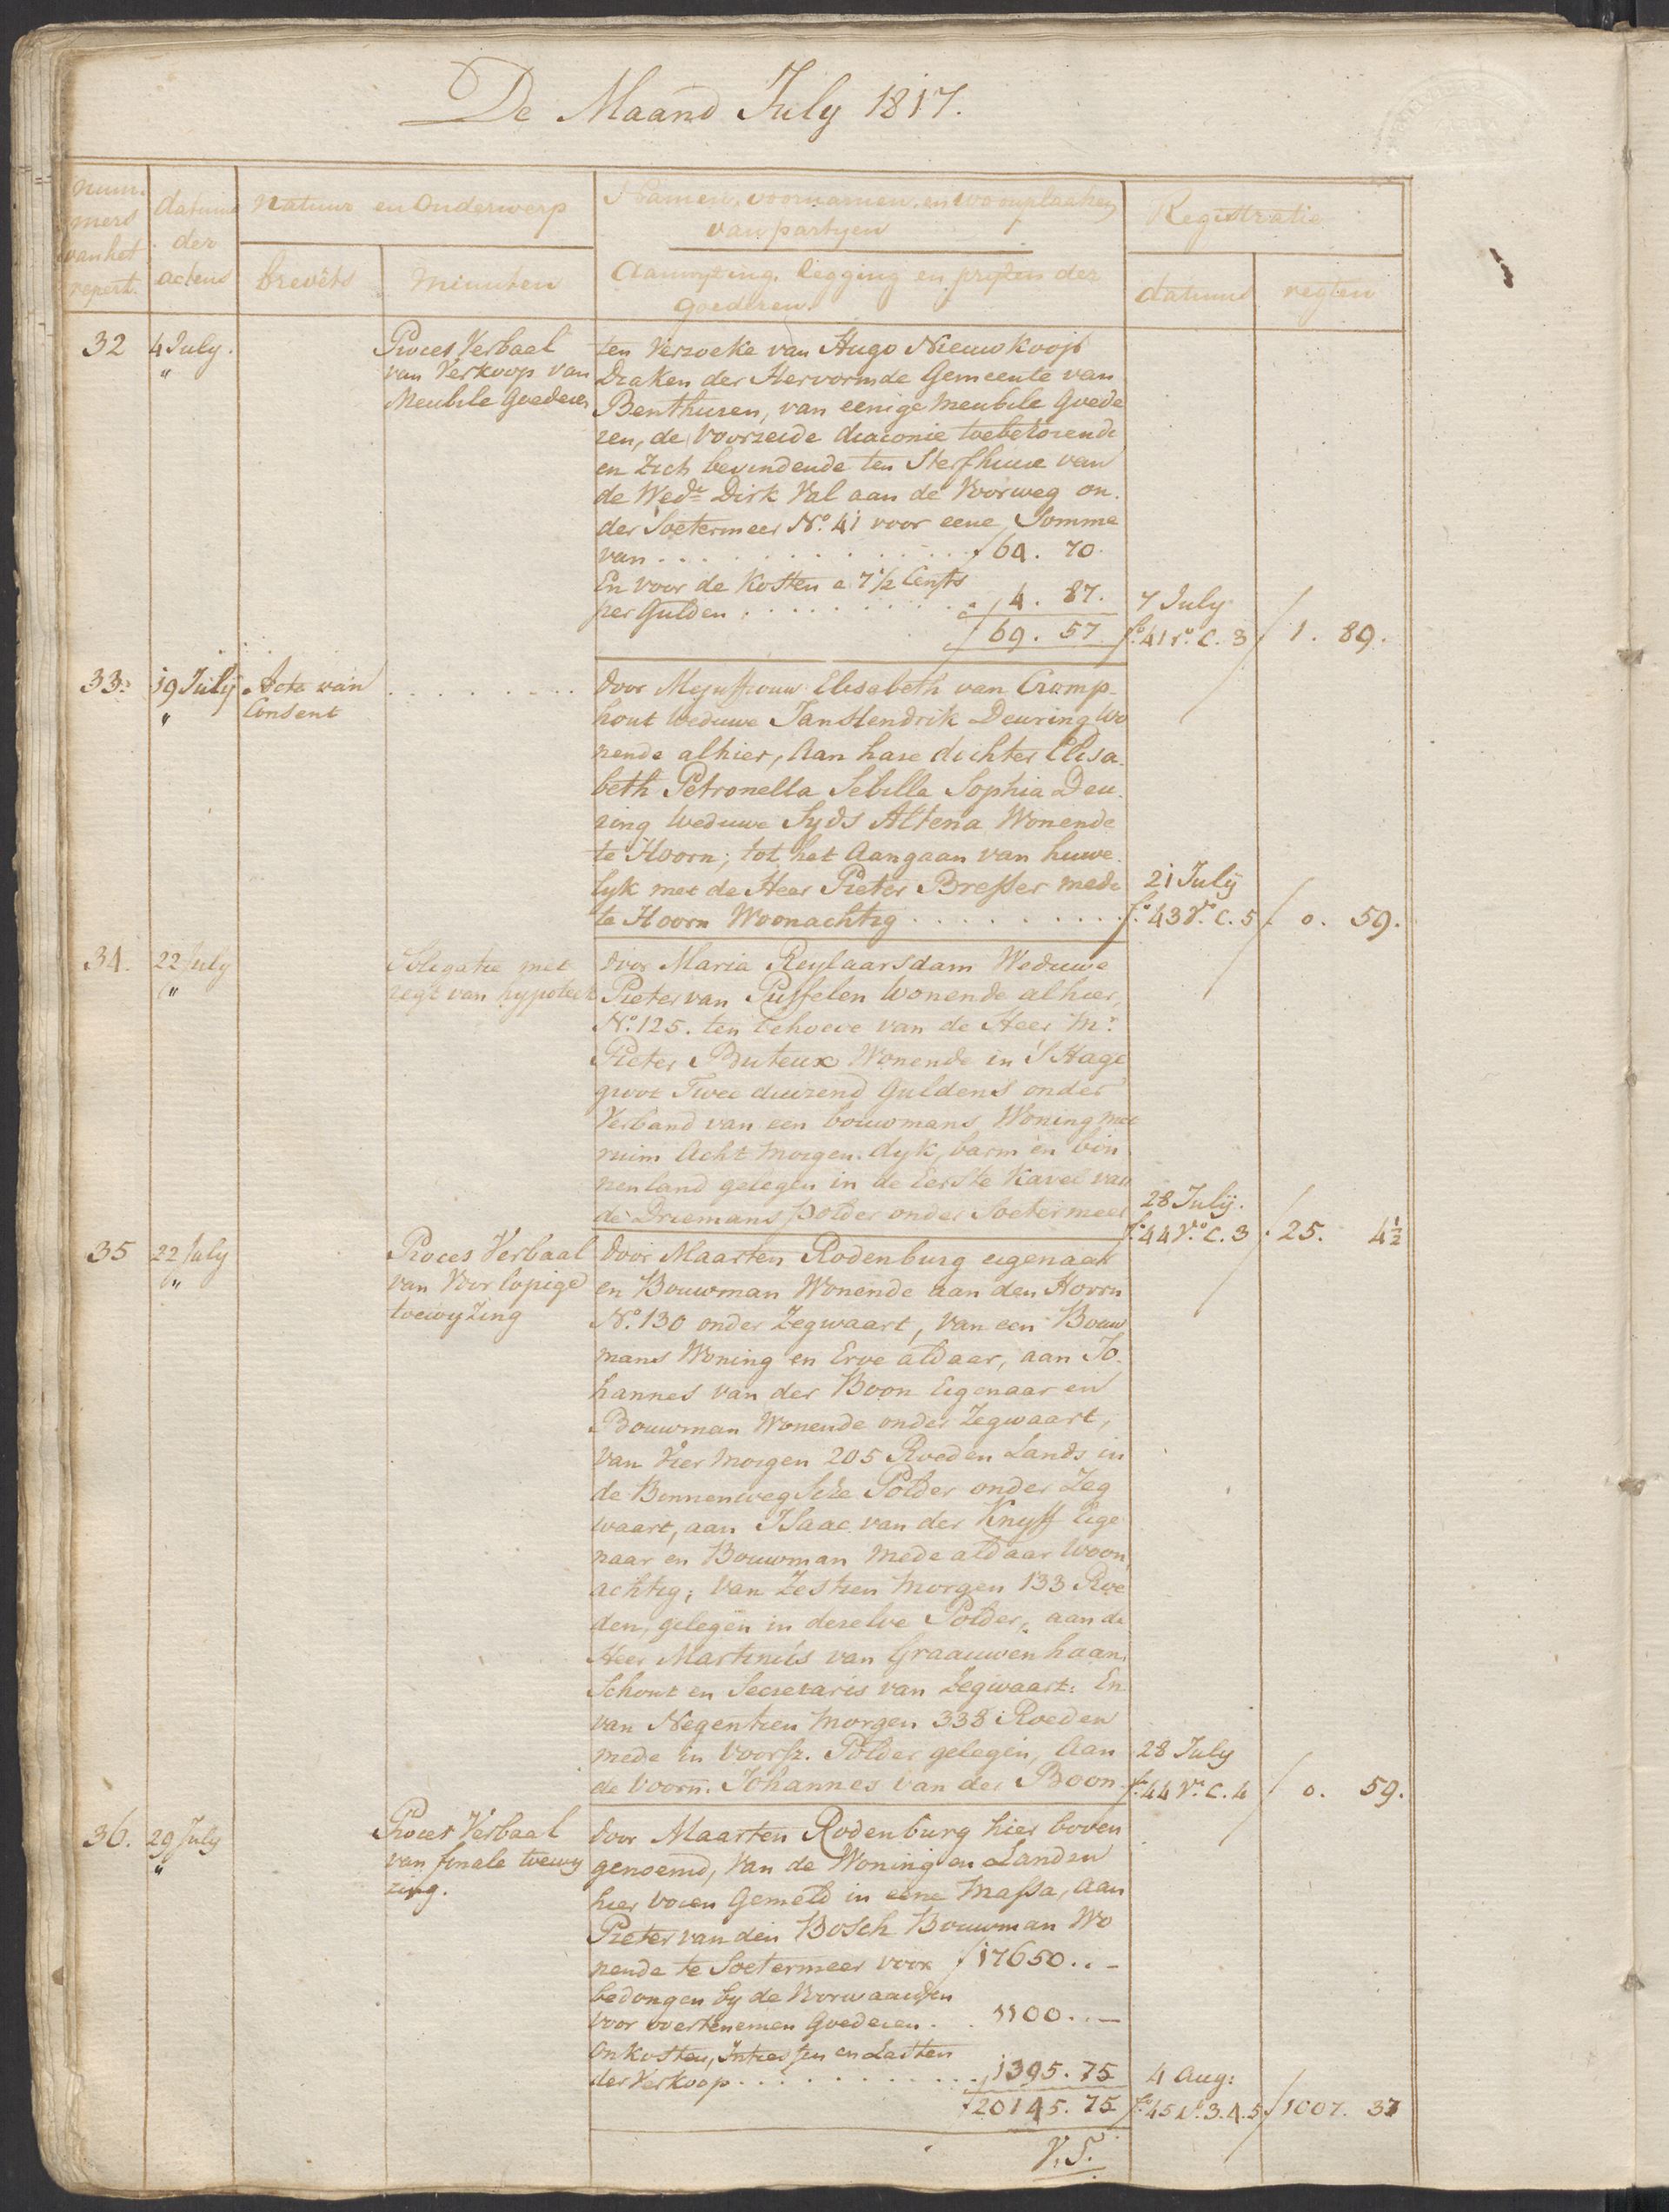 De Maand July 1817.
num.
mers
van het
repert.
datums
der
actens
Natuur en Onderwerp
brevèts
Minuten
Namen, voornamen, en woonplaatsen
van partyen
Aanwyzing, legging en pryzen der
goederen.
Registratie
datums
regten
32
4 July.
"
Proces Verbael
van Verkoop van
Meubile Goederen
ten Verzoeke van Hugo Nieuwkoop
Diaken der Hervormde Gemeente van
Benthuizen, van eenige meubile Goede
ren, de voorzeide diaconie toebehorende
en zich bevindende ten Sterfhuize van
de Wede Dirk Val aan de Voorweg on-
der Soetermeer No. 41 voor eene Somme
van . . . . . . . . . . ƒ 64. 70.
En voor de Kosten a 7 1/2 Cents
per Gulden . . . . . . . . . . 4. 87.
ƒ 69. 57
7 July
fo. 41 ro. C. 3
ƒ 1. 89.
33.
19 July
"
Acte van
Consent
. . . . . . . . .
door Mejuffrouw Elisabeth van Cramp-
hout Weduwe Jan Hendrik Deuring Wo
nende alhier, Aan hare dochter Elisa-
beth Petronella Sebilla Sophia Deu-
ring Weduwe Syds Altena Wonende
te Hoorn; tot het Aangaan van huwe-
lyk met de Heer Pieter Bresser mede
te Hoorn Woonachtig . . . . . . . . . .
21 July
fo. 43 Vo. C. 5
ƒ 0. 59.
34.
22 July
"
Obligatie met
regt van hypoteek
door Maria Reylaarsdam Weduwe
Pieter van Puffelen Wonende alhier,
No. 125. ten behoeve van de Heer Mr.
Pieter Buteux Wonende in 's Hage
groot Twee duizend Guldens onder
Verband van een bouwmans Woning met
ruim Acht morgen dyk, barm en bin
nenland gelegen in de Eerste Kavel van
de Driemans polder onder Soetermeer
28 July.
fo. 44 Vo. C. 3
ƒ 25. 4 1/2
35
22 July
"
Proces Verbaal
van Voorlopige
toewyzing
door Maarten Rodenburg eigenaar
en Bouwman Wonende aan den Hoorn
No. 130 onder Zegwaart, van een Bouw
mans Woning en Erve aldaar, aan Jo-
hannes van der Boon Eigenaar en
Bouwman Wonende onder Zegwaart,
van Vier morgen 205 Roeden Lands in
de Binnenwegsche Polder onder Zeg
waart, aan Isaac van der Knyff Eige
naar en Bouwman mede aldaar Woon
achtig; van Zestien morgen 133 Roe
den, gelegen in dezelve Polder, aan de
Heer Martinus van Graauwenhaan
Schout en Secretaris van Zegwaart: En
van Negentien morgen 338 Roeden
mede in voorsz. Polder gelegen, Aan
de voorn. Johannes van der Boon
28 July
fo. 44 Vo. C. 4
ƒ 0. 59.
36.
29 July
"
Proces Verbaal
van finale toewy
zing.
door Maarten Rodenburg hier boven
genoemd, Van de Woning en Landen
hier voren Gemeld in eene Massa, Aan
Pieter van den Bosch Bouwman Wo
nende te Soetermeer voor ƒ 17650. . –
bedongen by de Voorwaarden
voor overtenemen Goederen . . 1100. . –
Onkosten, Intressen en Lasten
der Verkoop . . . . . . . . . . 1395. 75
ƒ 20145. 75
4 Aug:
fo. 45 Vo. 3.4.5
ƒ 1007. 37
V.S.